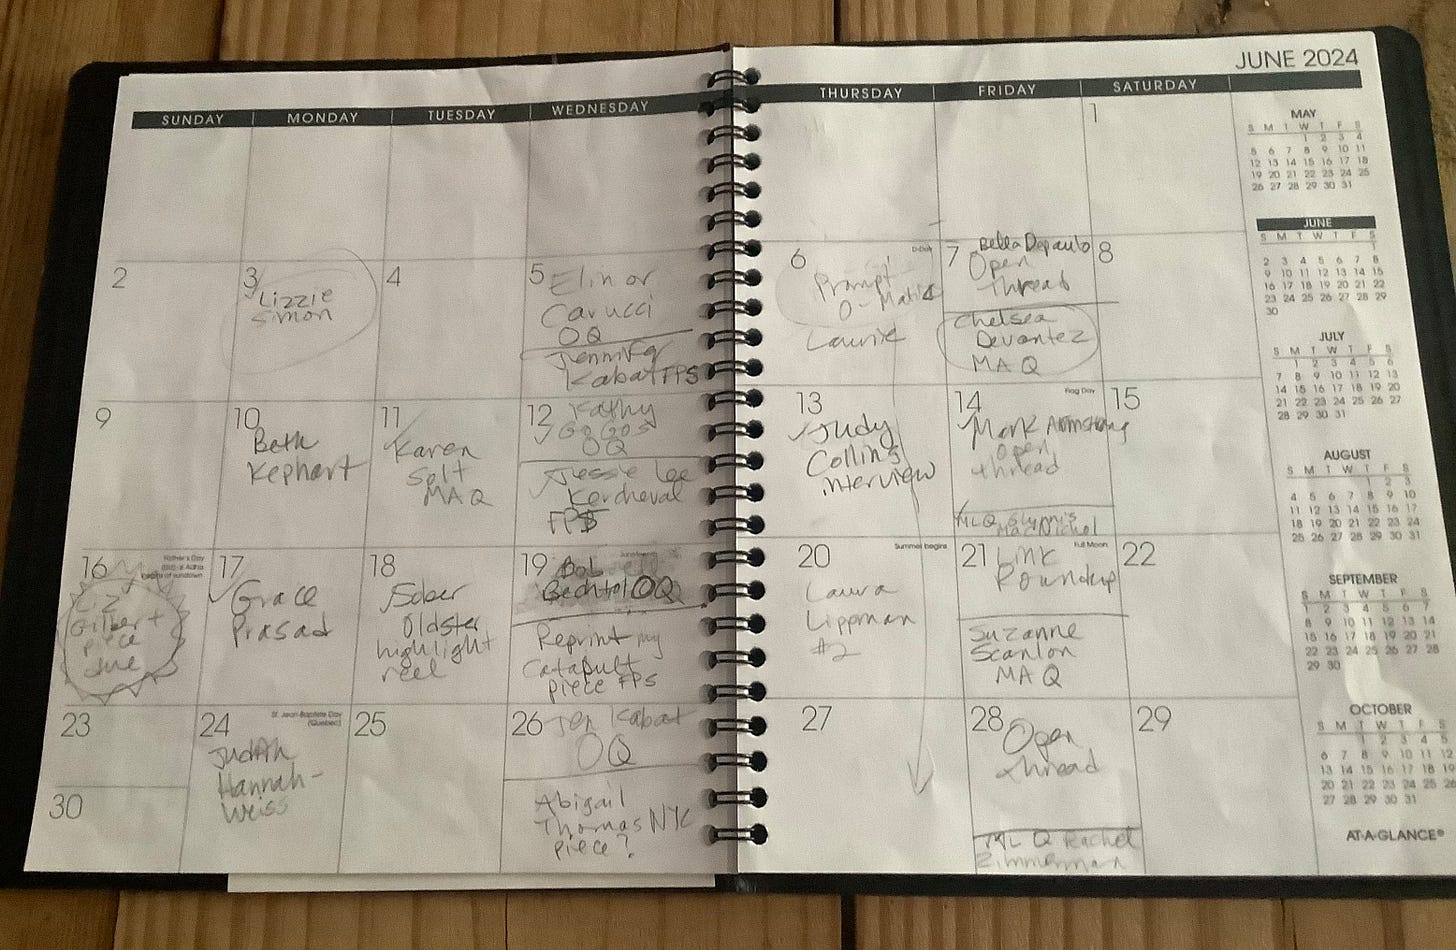 JUNE 2024
SUNDAY MONDAY TUESDAY WEDNESDAY THURSDAY FRIDAY SATURDAY
1
2
3
Lizzie
Simon
4
5 Elinor
Carucci
OQ
Jennifer
Kabat FPS
6
D-Day
Prompt
O-Matic
Laurie
7
Bella Depaulo
Open
thread
Chelsea
Devantez
MAQ
8
9
10
Beth
Kephart
11
Karen
Salt
MAQ
12 Kathy
GoGos
OQ
Jessie Lee
Kercheval
FPS
13
Judy
Collins
interview
14
Flag Day
Mark Armstrong
open
thread
MLQ Glynnis
MacNichol
15
16
Father's Day
Liz
Gilbert
piece
due
17
Grace
Prasad
18
Sober
Oldster
highlight
reel
19
Juneteenth
Bob
Bechtol OQ
Reprint my
Catapult
piece FPS
20
Summer begins
Laura
Lippman
#2
21
Full Moon
Link
Roundup
Suzanne
Scanlon
MAQ
22
23
24
St. Jean-Baptiste Day
(Quebec)
Judith
Hannah-
Weiss
25
26 Jen Kabat
OQ
Abigail
Thomas NYC
piece?
27
28
Open
thread
MLQ Rachel
Zimmerman
29
30
MAY
S M T W T F S
1 2 3 4
5 6 7 8 9 10 11
12 13 14 15 16 17 18
19 20 21 22 23 24 25
26 27 28 29 30 31
JUNE
S M T W T F S
1
2 3 4 5 6 7 8
9 10 11 12 13 14 15
16 17 18 19 20 21 22
23 24 25 26 27 28 29
30
JULY
S M T W T F S
1 2 3 4 5 6
7 8 9 10 11 12 13
14 15 16 17 18 19 20
21 22 23 24 25 26 27
28 29 30 31
AUGUST
S M T W T F S
1 2 3
4 5 6 7 8 9 10
11 12 13 14 15 16 17
18 19 20 21 22 23 24
25 26 27 28 29 30 31
SEPTEMBER
S M T W T F S
1 2 3 4 5 6 7
8 9 10 11 12 13 14
15 16 17 18 19 20 21
22 23 24 25 26 27 28
29 30
OCTOBER
S M T W T F S
1 2 3 4 5
6 7 8 9 10 11 12
13 14 15 16 17 18 19
20 21 22 23 24 25 26
27 28 29 30 31
AT-A-GLANCE®